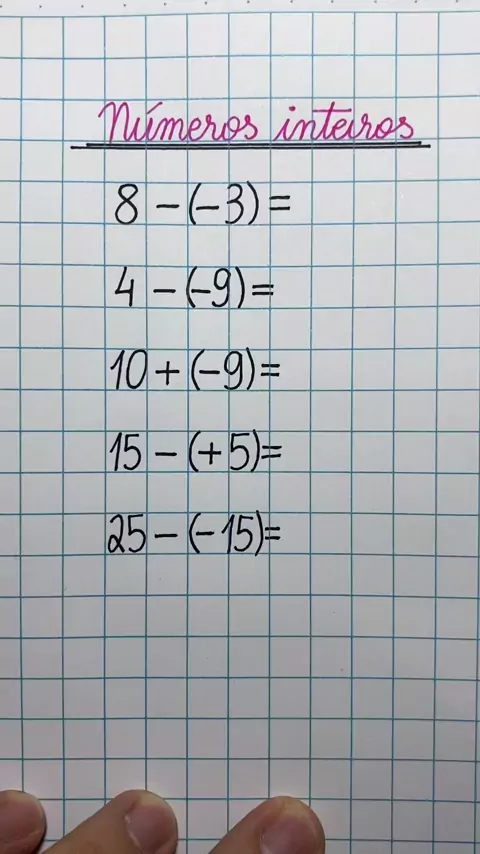 Números inteiros
8 - (-3) =
4 - (-9) =
10 + (-9) =
15 - (+5) =
25 - (-15) =